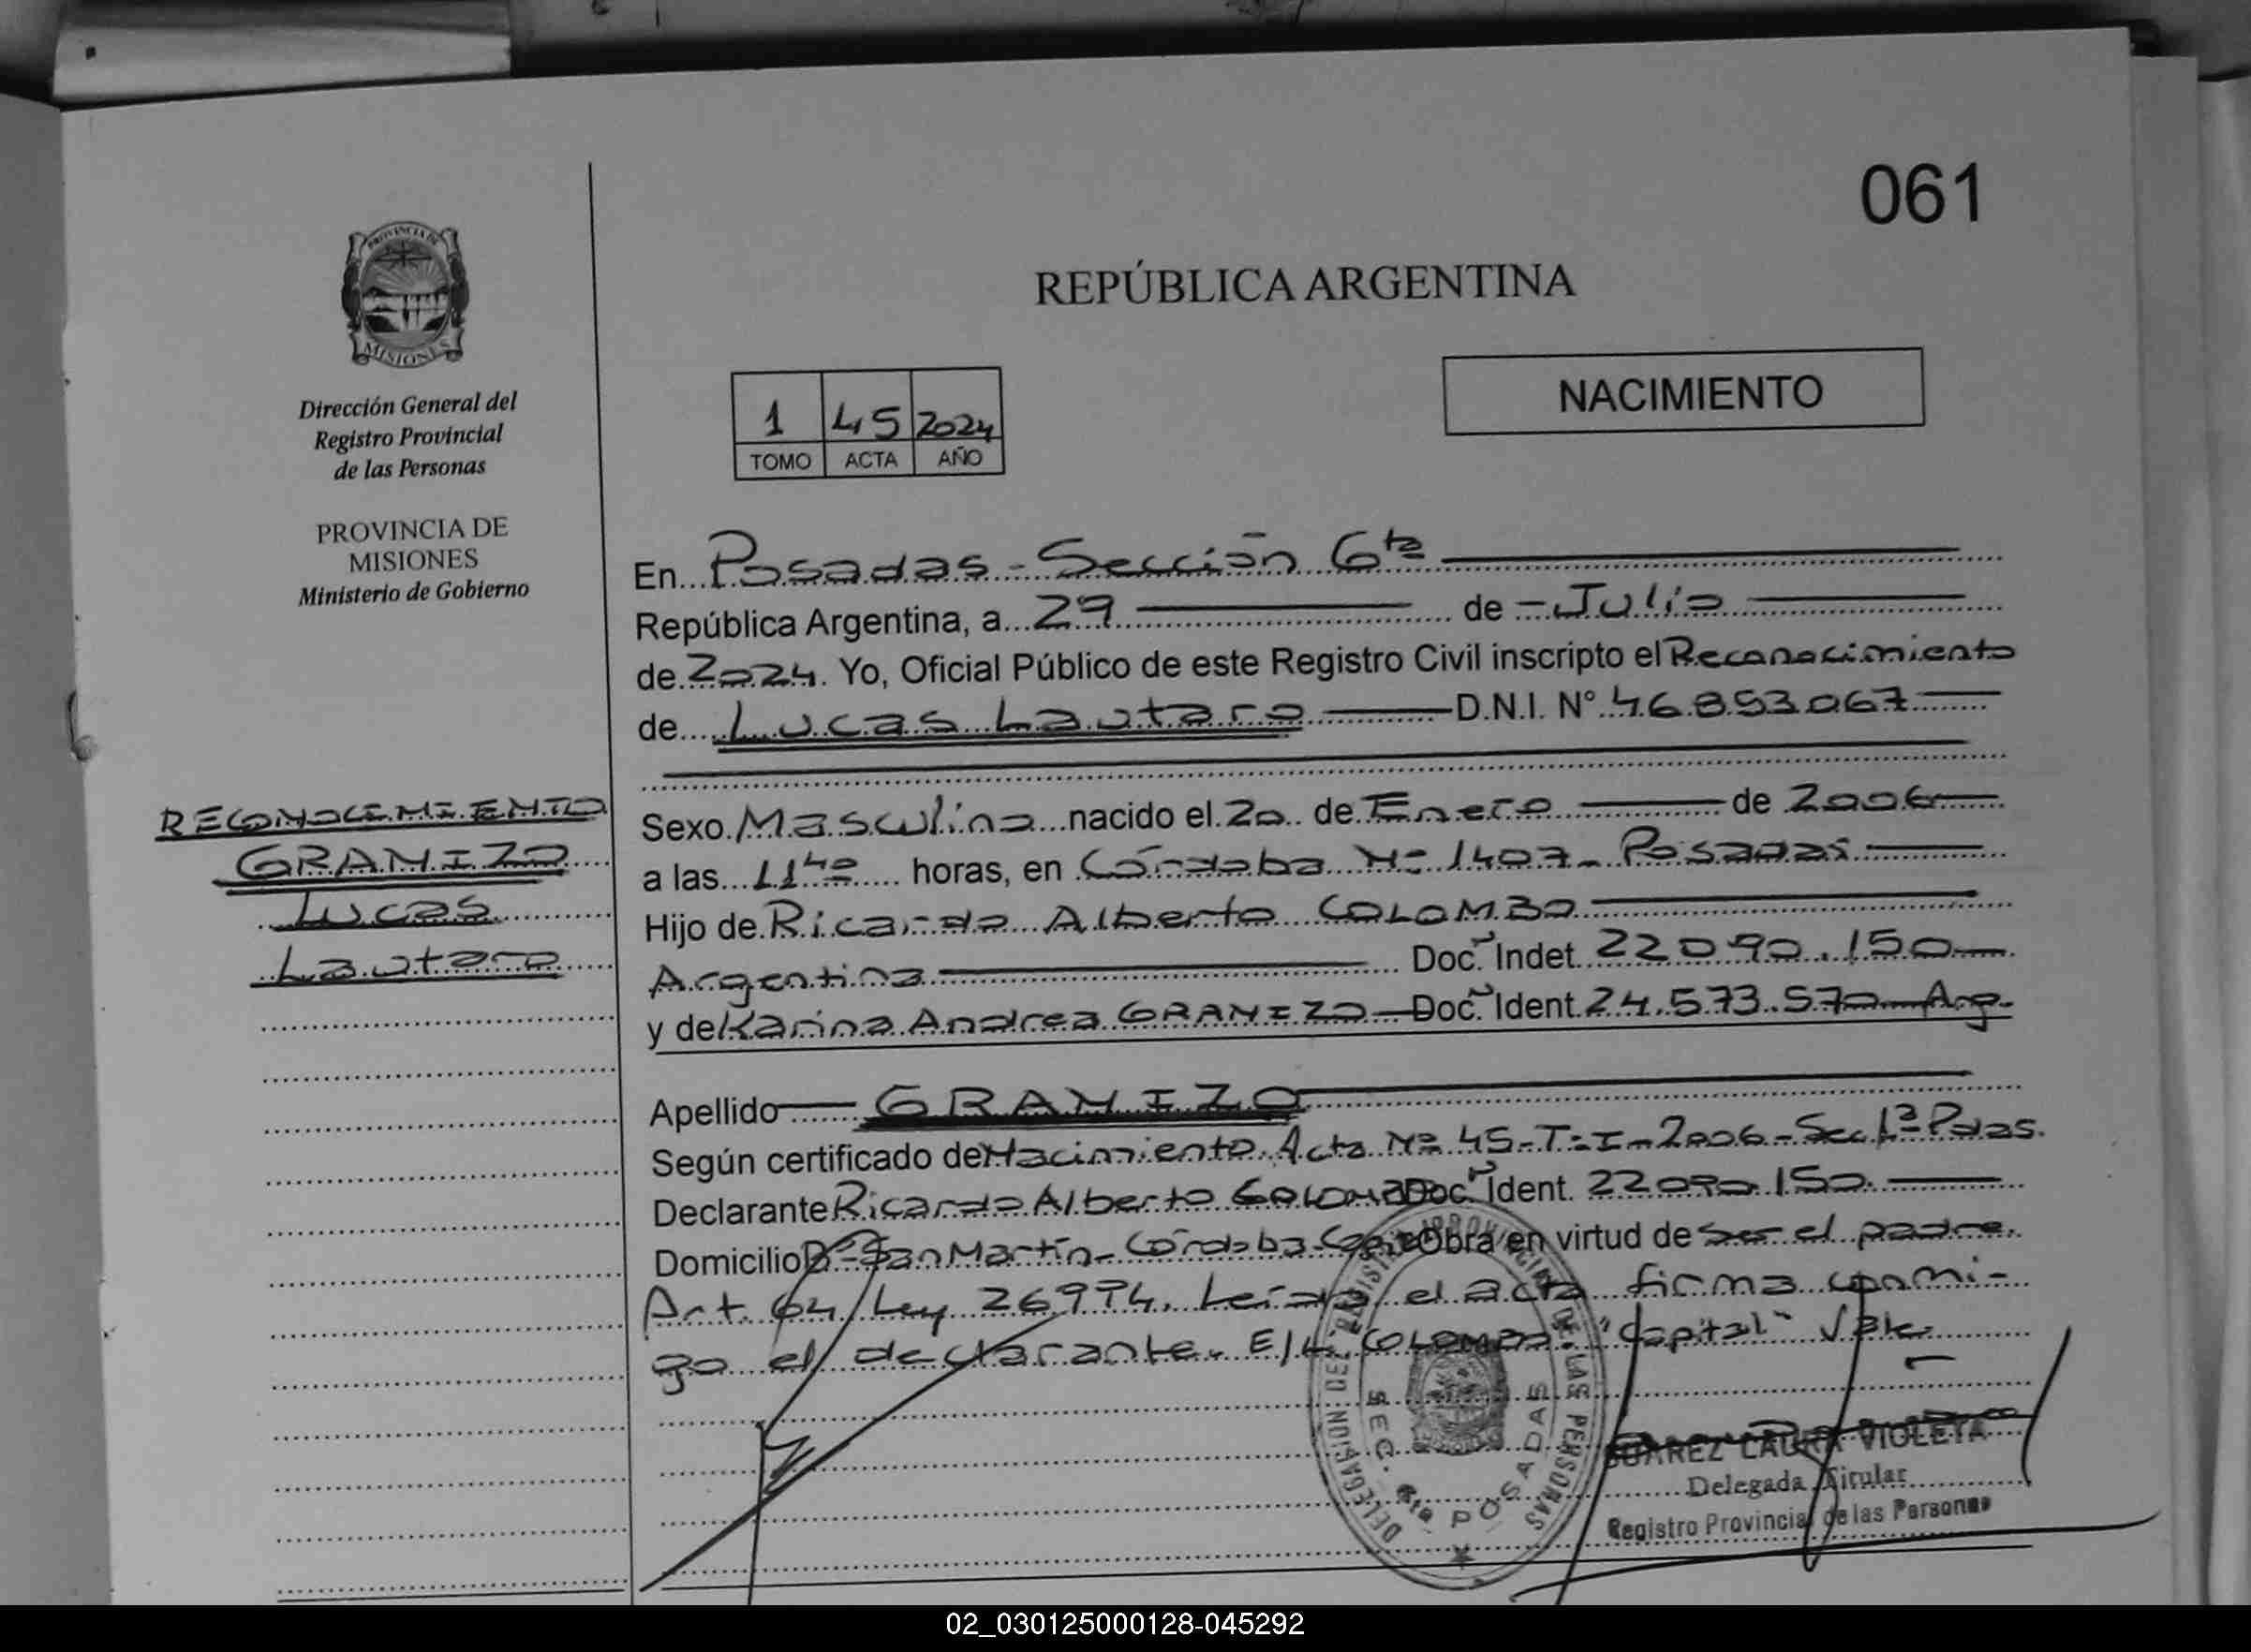 061
REPÚBLICA ARGENTINA
NACIMIENTO
1 45 2024
TOMO ACTA AÑO
PROVINCIA DE
MISIONES
Dirección General del
Registro Provincial
de las Personas
PROVINCIA DE
MISIONES
Ministerio de Gobierno
RECONOCIMIENTO
GRANIZO
Lucas
Lautaro
En Posadas - Sección 6ta
República Argentina, a 29 de Julio
de 2024. Yo, Oficial Público de este Registro Civil inscripto el Reconocimiento
de Lucas Lautaro D.N.I. N° 46.853.067
Sexo Masculino nacido el 20 de Enero de 2006
a las 11 40 horas, en Córdoba Nº 1407 - Posadas
Hijo de Ricardo Alberto COLOMBO
Argentina Doc. Indet. 22.090.150
y de Karina Andrea GRANIZO Doc. Ident. 24.573.570 Arg.
Apellido GRANIZO
Según certificado de Nacimiento Acta Nº 45-T-I-2006-Sec 1ª Pdas.
Declarante Ricardo Alberto COLOMBO Doc. Ident. 22.090.150
Domicilio Bº San Martín - Córdoba Obra en virtud de ser el padre.
Art. 64 Ley 26994. Leída el acta firma conmi-
go el declarante. E/L COLOMBO "Capital" Vale
DELEGACIÓN DEL REGISTRO PROVINCIAL DE LAS PERSONAS
SEC. 6ta POSADAS
SUAREZ LAURA VIOLETA
Delegada Titular
Registro Provincial de las Personas
02_030125000128-045292